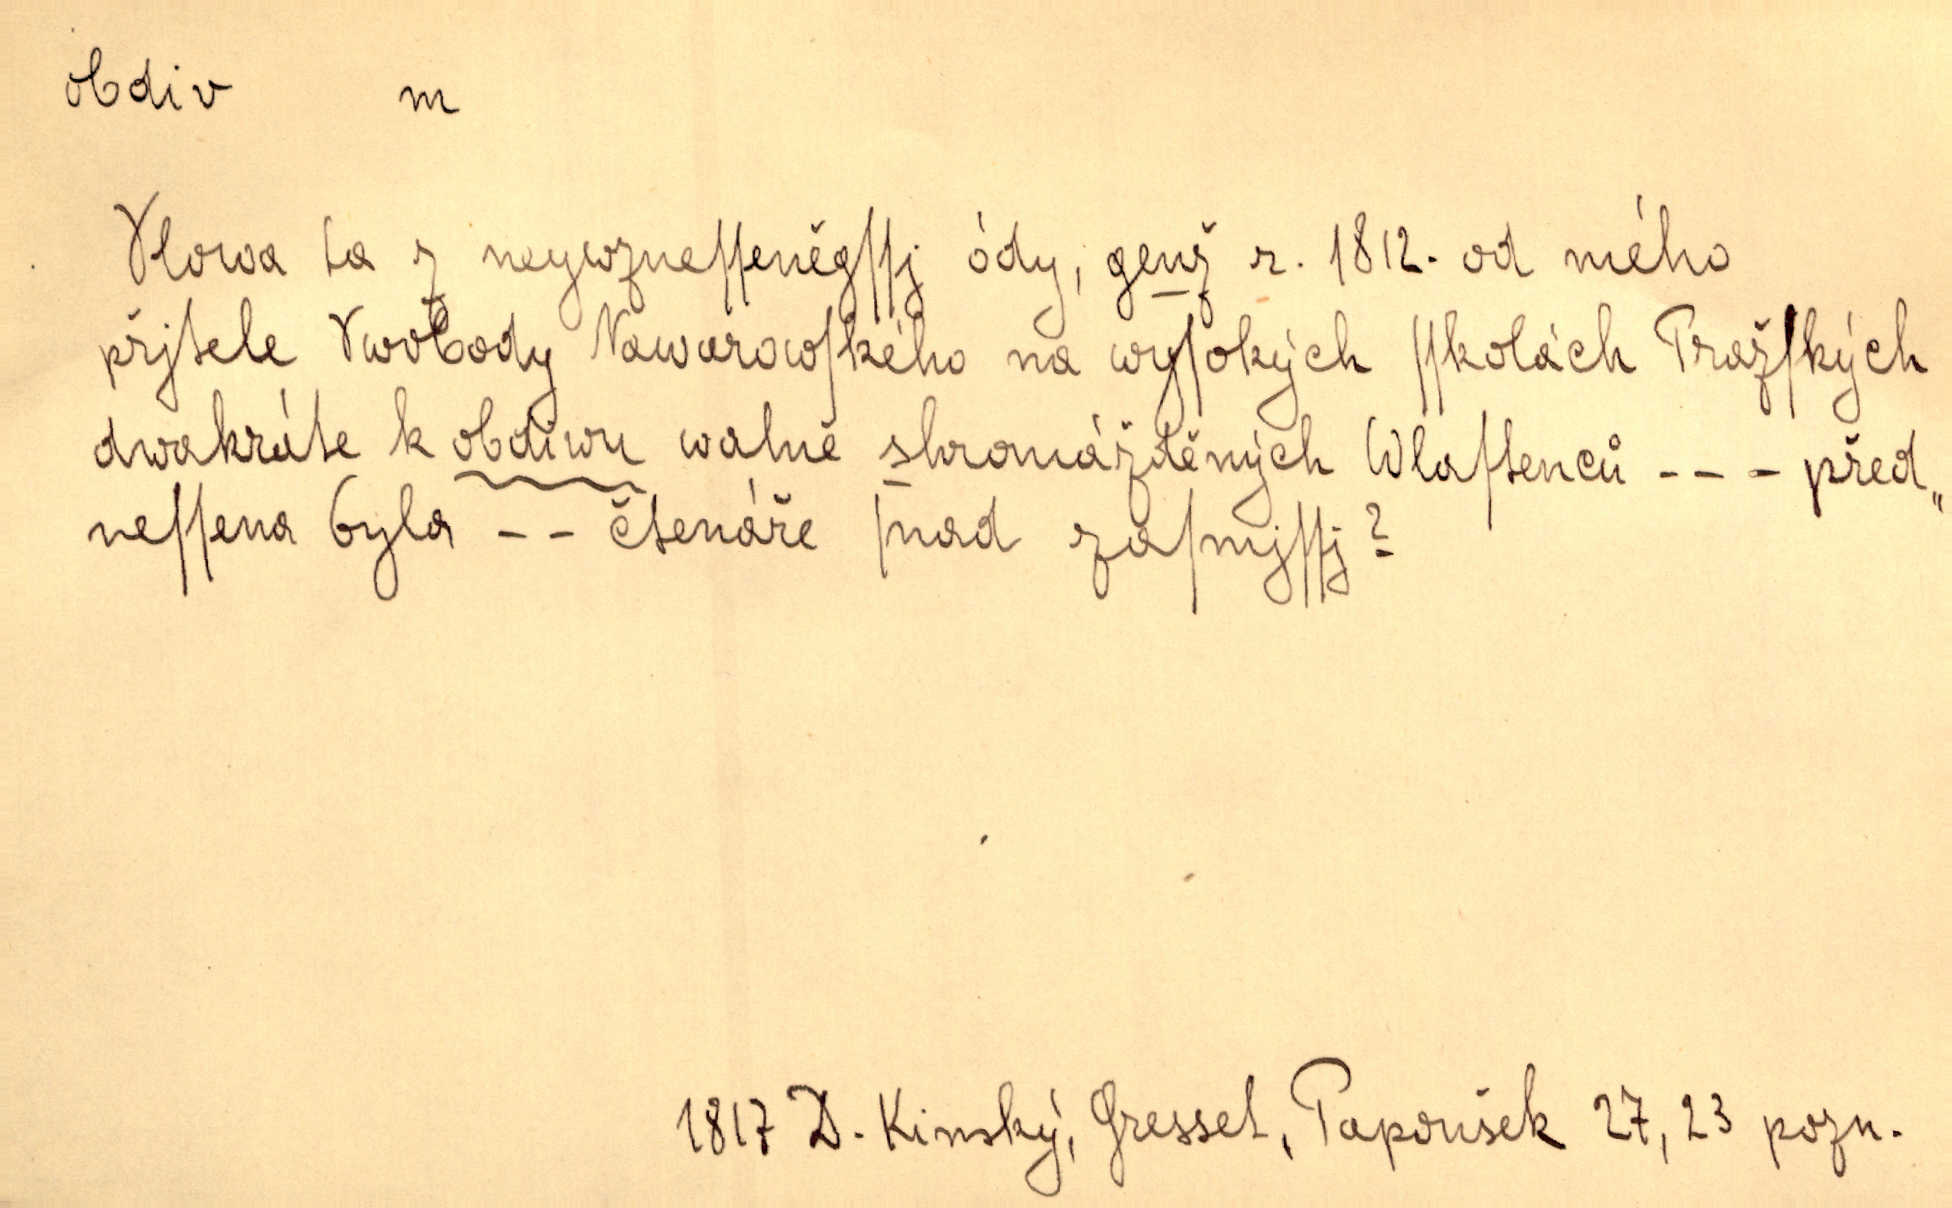 obdiv m
Slowa ta z neywzneſſeněgſſj ódy, genž r. 1812. od mého
přjtele Swobody Nawarowſkého na wyſokých ſſkolách Pražſkých
dwakráte k obdiwu walně shromážděných Wlaſtenců --- před„
neſſena byla -- čtenáře ſnad zaſmjſſj?
1817 D. Kinský, Gresset, Papoušek 27, 23 pozn.